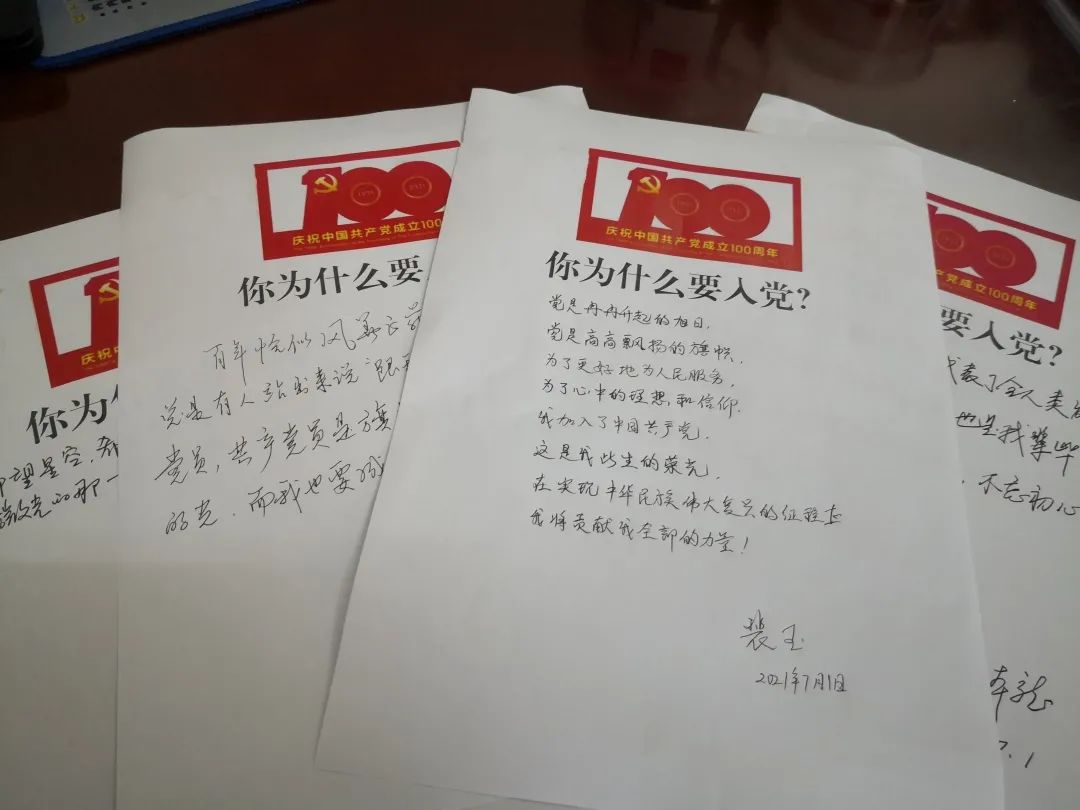 庆祝中国
你为什
仰望星空,
党的那一
100
庆祝中国共产党成立100
你为什么要
百年恰似风华正茂
总是有人站出来说“跟
党员,共产党员是旗
的党,而我也要
100
庆祝中国共产党成立100周年
你为什么要入党?
党是冉冉升起的旭日,
党是高高飘扬的旗帜,
为了更好地为人民服务,
为了心中的理想和信仰,
我加入了中国共产党,
这是我此生的荣光,
在实现中华民族伟大复兴的征程上
我将贡献我全部的力量!
裴玉
2021年7月1日
产党成立100周年
要入党?
代表了全人类
也是我毕
,不忘初心
7.1